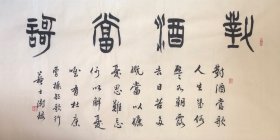 對酒當謌
對酒當歌
人生幾何
譬如朝露
去日苦多
慨當以慷
憂思難忘
何以解憂
唯有杜康
曹操短歌行
蘇士澍